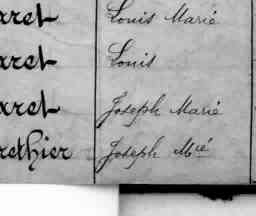 aret Louis Marie
aret Louis
aret Joseph Marie
rethier Joseph Mié